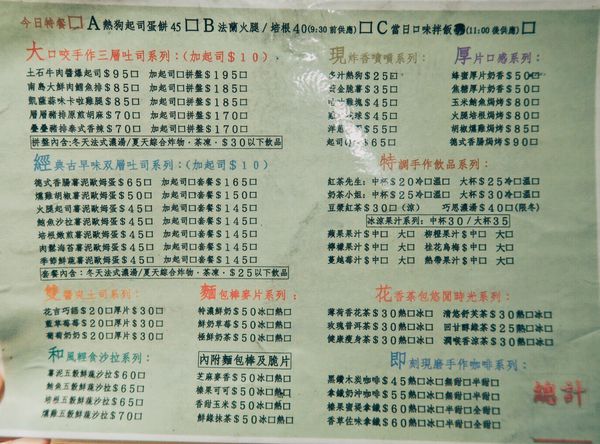 今日特餐□A熱狗起司蛋餅45□B法蘭火腿/培根40(9:30前供應)□C當日口味拌飯(11:00後供應)□
大口咬手作三層吐司系列：(加起司$10)
土石牛肉醬爆起司$95□ 加起司□拼盤$195□
南島大鮮肉鱈魚排$85□ 加起司□拼盤$185□
凱薩蒜味卡啦雞腿$85□ 加起司□拼盤$185□
層層豬排原煎胡麻$70□ 加起司□拼盤$170□
疊疊豬排泰式香辣$70□ 加起司□拼盤$170□
拼盤內含:冬天法式濃湯/夏天綜合炸物、茶凍、$30以下飲品
現炸香噴噴系列：
多汁熱狗$25□
黃金脆薯$35□
$45□
$45□
洋蔥$50□
起司Q$65□
厚片口感系列：
蜂蜜厚片奶香$50□
焦糖厚片奶香$50□
玉米鮪魚焗烤$80□
火腿培根焗烤$80□
胡椒燻雞焗烤$85□
德式香腸焗烤$90□
經典古早味双層吐司系列：(加起司$10)
德式香腸薯泥歐姆蛋$65□ 加起司□套餐$165□
燻雞胡椒薯泥歐姆蛋$50□ 加起司□套餐$150□
火腿起司薯泥歐姆蛋$45□ 加起司□套餐$145□
鮪魚沙拉薯泥歐姆蛋$45□ 加起司□套餐$145□
培根嫩煎薯泥歐姆蛋$45□ 加起司□套餐$145□
肉鬆海苔薯泥歐姆蛋$45□ 加起司□套餐$145□
季節鮮蔬薯泥歐姆蛋$45□ 加起司□套餐$145□
套餐內含:冬天法式濃湯/夏天綜合炸物、茶凍、$25以下飲品
特調手作飲品系列：
紅茶先生：中杯$20冷□溫□ 大杯$25冷□溫□
奶茶小姐：中杯$25冷□溫□ 大杯$30冷□溫□
豆漿紅茶$30□(涼) 巧思濃湯$40□(限冬)
冰涼果汁系列：中杯30/大杯35
蘋果果汁□中□ 大□ 柳橙果汁□中□ 大□
檸檬果汁□中□ 大□ 桂花烏梅□中□ 大□
蔓越莓汁□中□ 大□ 熱帶果汁□中□ 大□
雙醬夾土司系列：
花言巧語$20□厚片$30□
藍草莓莓$20□厚片$30□
葡萄奶奶$20□厚片$30□
麵包棒麥片系列：
特濃鮮奶$50□冰□熱□
鮮奶草莓$50□冰□熱□
極鮮奶茶$50□冰□熱□
花香茶包悠閒時光系列：
薄荷香花茶$30□熱□冰□ 清悠舒芙茶$30□熱□冰□
玫瑰普洱茶$30□熱□冰□ 回甘醇綠茶$25□熱□冰□
健康瘦身茶$30□熱□冰□ 潤喉香涼茶$30□熱□冰□
和風輕食沙拉系列：
薯泥五穀鮮蔬沙拉$60□
鮪魚五穀鮮蔬沙拉$65□
培根五穀鮮蔬沙拉$65□
燻雞五穀鮮蔬沙拉$70□
內附麵包棒及脆片
芝麻麥香$50□冰□熱□
榛果可可$50□冰□熱□
香甜玉米$50□冰□熱□
鮮綠抹茶$50□冰□熱□
即刻現磨手作咖啡系列：
黑鑽木炭咖啡$45熱□冰□無甜□半甜□
拿鐵奶沖咖啡$55熱□冰□無甜□半甜□
榛果蜜提拿鐵$60熱□冰□無甜□半甜□
香草佐味拿鐵$60熱□冰□無甜□半甜□
總計